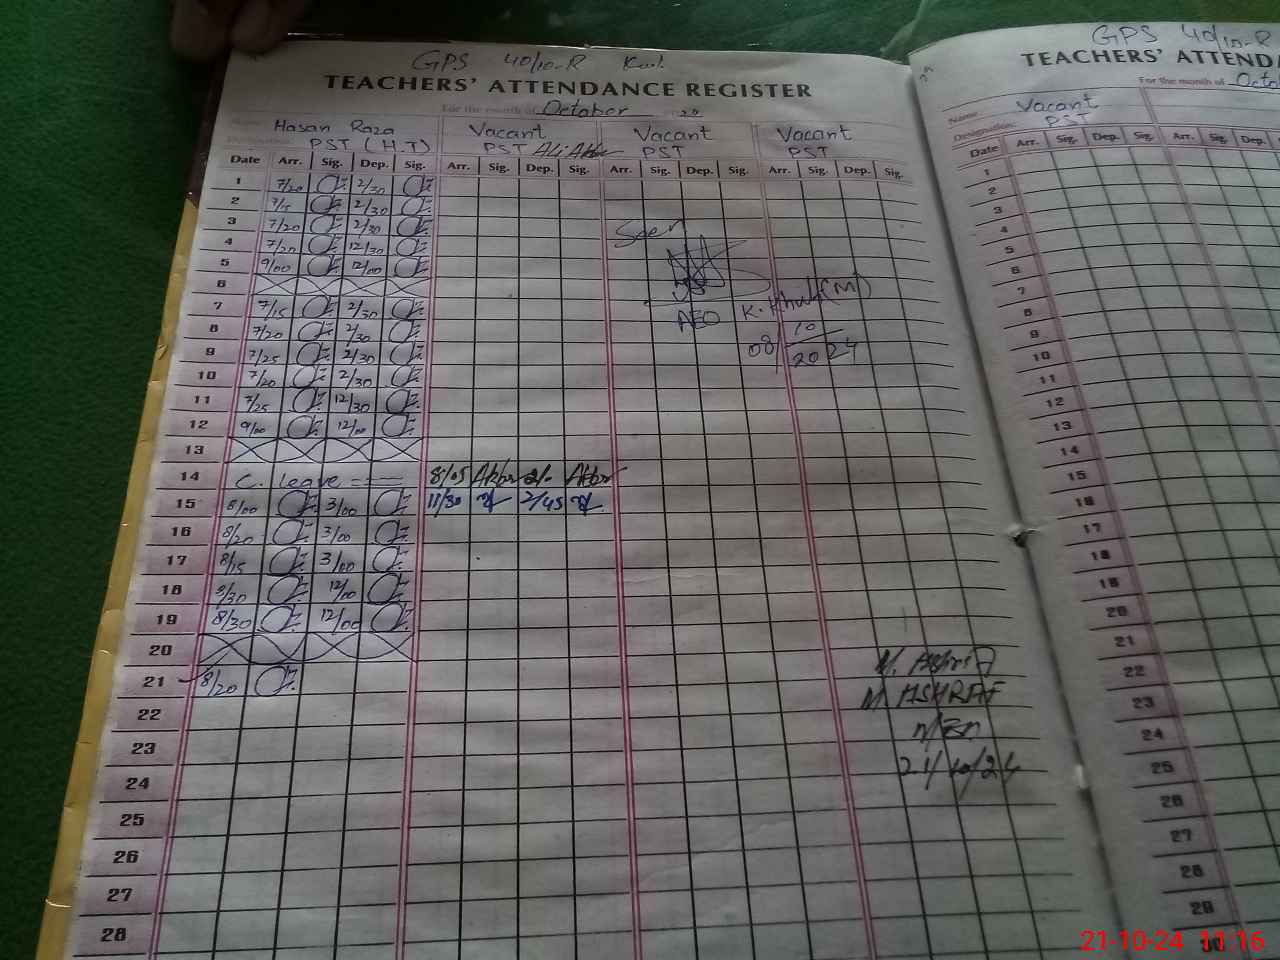 GPS 40/10-R
TEACHERS' ATTENDANCE REGISTER
For the month of October
Hasan Raza Vacant Vacant Vacant
PST (H.T) PST Ali Akbar PST PST
Date Arr. Sig. Dep. Sig. Arr. Sig. Dep. Sig. Arr. Sig. Dep. Sig. Arr. Sig. Dep. Sig.
1 7/20 2/30
2 2/30
3 7/20 2/30
4 7/20 12/30
5 9/00 12/00
6
7 7/15 2/30
8 7/20 2/30
9 7/25 2/30
10 7/20 2/30
11 7/25 12/30
12 9/00 12/00
13
14 C. Leave 8/05 Akbar Akbar
15 8/00 3/00 11/30 2/45
16 8/20 3/00
17 8/15 3/00
18 8/30 12/00
19 8/30 12/00
20
21 8/20
22
23
24
25
26
27
28
Seen
AEO K. Khuh (M)
08/10/2024
M. Ashraf
M. ASHRAF
21/10/24
GPS 40/10-R
TEACHERS' ATTENDA
For the month of Octo
Name Vacant
Designation: PST
Date Arr. Sig. Dep. Sig. Arr. Sig. Dep.
1
2
3
4
5
6
7
8
9
10
11
12
13
14
15
16
17
18
19
20
21
22
23
24
25
26
27
28
29
30
21-10-24 11:16